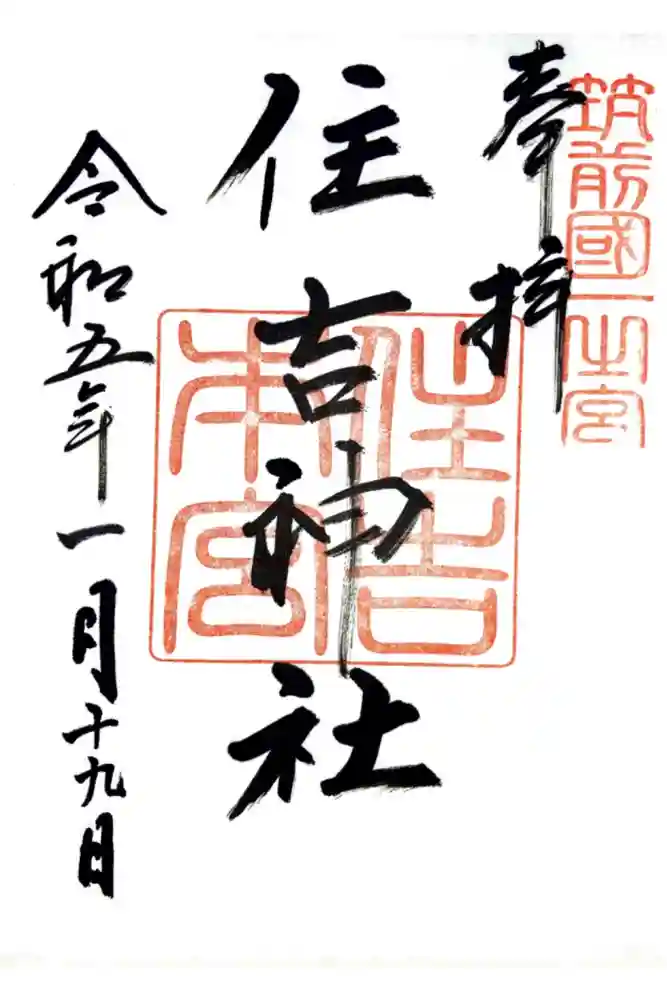 奉拝
筑前國一之宮
住吉神社
住吉本宮
令和五年一月十九日